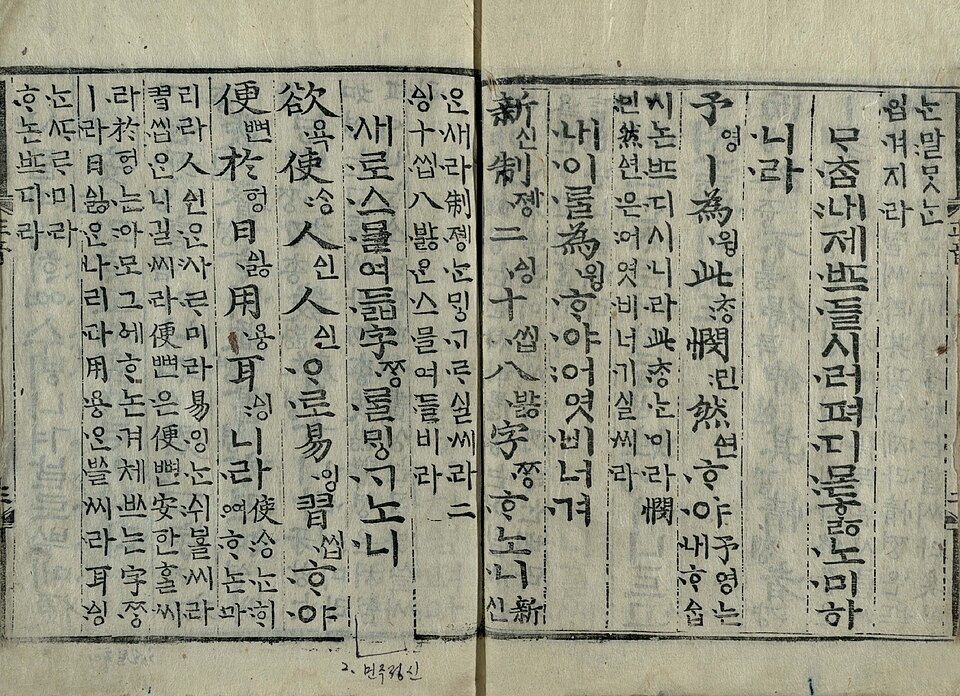 ᄂᆞᆫ말ᄆᆞᆺᄂᆞᆫ
입겨지라
ᄆᆞᄎᆞᆷ내제ᄠᅳ들시러펴디몯ᄒᆞᇙ노미하
니라
予영ㅣ為윙此ᄎᆞᆼ憫민然ᅀᅧᆫᄒᆞ야予영는
내ᄒᆞᅀᆞᆸ
시논ᄠᅳ디시니라此ᄎᆞᆼᄂᆞᆫ이라憫
민然ᅀᅧᆫ은어엿비너기실씨라
내이ᄅᆞᆯ為윙ᄒᆞ야어엿비너겨
新신制졩二ᅀᅵᆼ十씹八바ᇙ字ᄍᆞᆼᄒᆞ노니新
신
은새라制졩ᄂᆞᆫᄆᆡᇰᄀᆞᄅᆞ실씨라二
ᅀᅵᆼ十씹八바ᇙ은스믈여들비라
새로스믈여듧字ᄍᆞᆼᄅᆞᆯᄆᆡᇰᄀᆞ노니
欲욕使ᄉᆞᆼ人ᅀᅵᆫ人ᅀᅵᆫᄋᆞ로易잉習씹ᄒᆞ야
便뼌於ᅙᅥᆼ日ᅀᅵᇙ用용耳ᅀᅵᆼ니라使ᄉᆞᆼᄂᆞᆫᄒᆡ
여ᄒᆞ논마
리라人ᅀᅵᆫᄋᆞᆫ사ᄅᆞ미라易잉ᄂᆞᆫ쉬ᄫᅳᆯ씨라
習씹은니길씨라便뼌은便뼌安ᅙᅡᆫᄒᆞᆯ씨
라於ᅙᅥᆼ는아모그ᅌᅦᄒᆞ논겨체ᄡᅳ는字ᄍᆞᆼ
ㅣ라日ᅀᅵᇙᄋᆞᆫ나리라用용ᄋᆞᆫᄡᅳᆯ씨라耳ᅀᅵᆼ
ᄂᆞᆫᄯᆞᄅᆞ미라
ᄒᆞ논ᄠᅳ디라
2. 민주정신